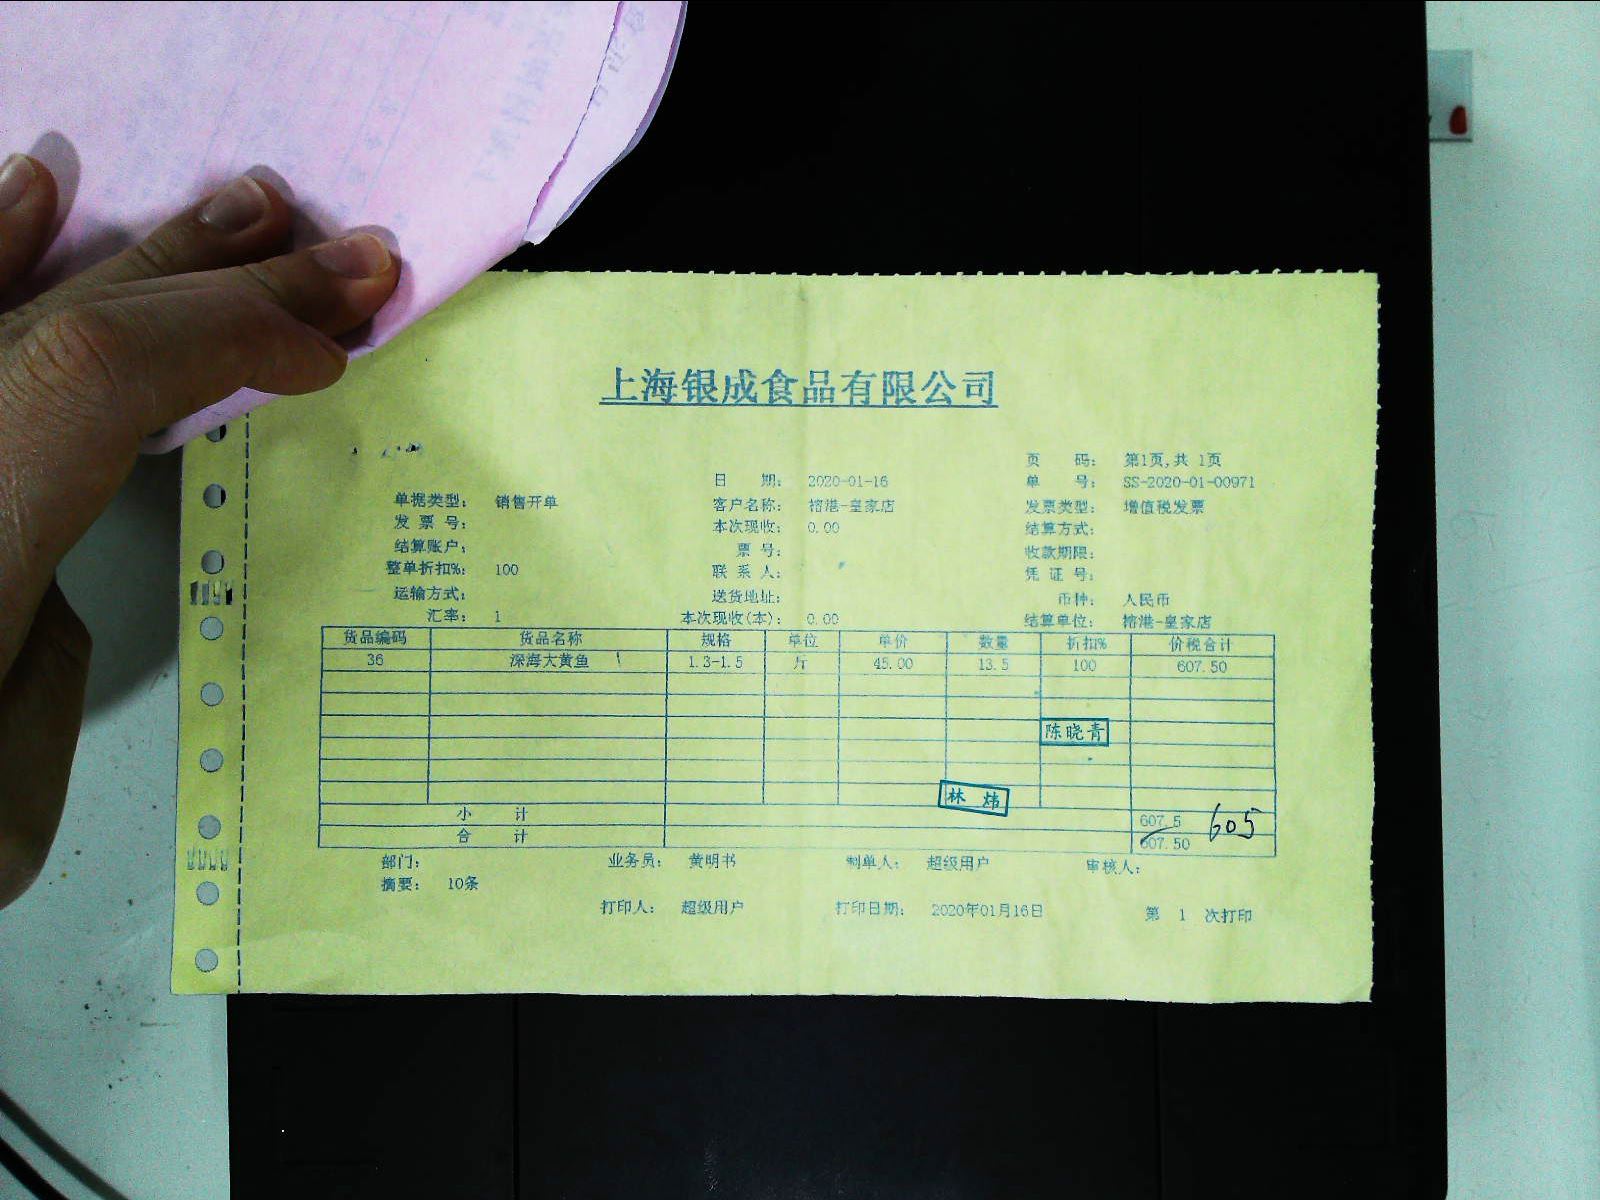 上海银成食品有限公司
页 码： 第1页,共 1页
日 期： 2020-01-16 单 号： SS-2020-01-00971
单据类型： 销售开单 客户名称： 榕港-皇家店 发票类型： 增值税发票
发 票 号： 本次现收： 0.00 结算方式：
结算账户： 票 号： 收款期限：
整单折扣%： 100 联 系 人： 凭 证 号：
运输方式： 送货地址： 币种： 人民币
汇率： 1 本次现收(本)： 0.00 结算单位： 榕港-皇家店
货品编码 货品名称 规格 单位 单价 数量 折扣% 价税合计
36 深海大黄鱼 1.3-1.5 斤 45.00 13.5 100 607.50
陈晓青
林炜
小 计 607.5 605
合 计 607.50
部门： 业务员： 黄明书 制单人： 超级用户 审核人：
摘要： 10条
打印人： 超级用户 打印日期： 2020年01月16日 第 1 次打印